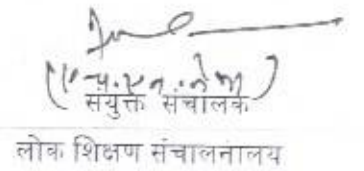 संयुक्त संचालक
लोक शिक्षण संचालनालय